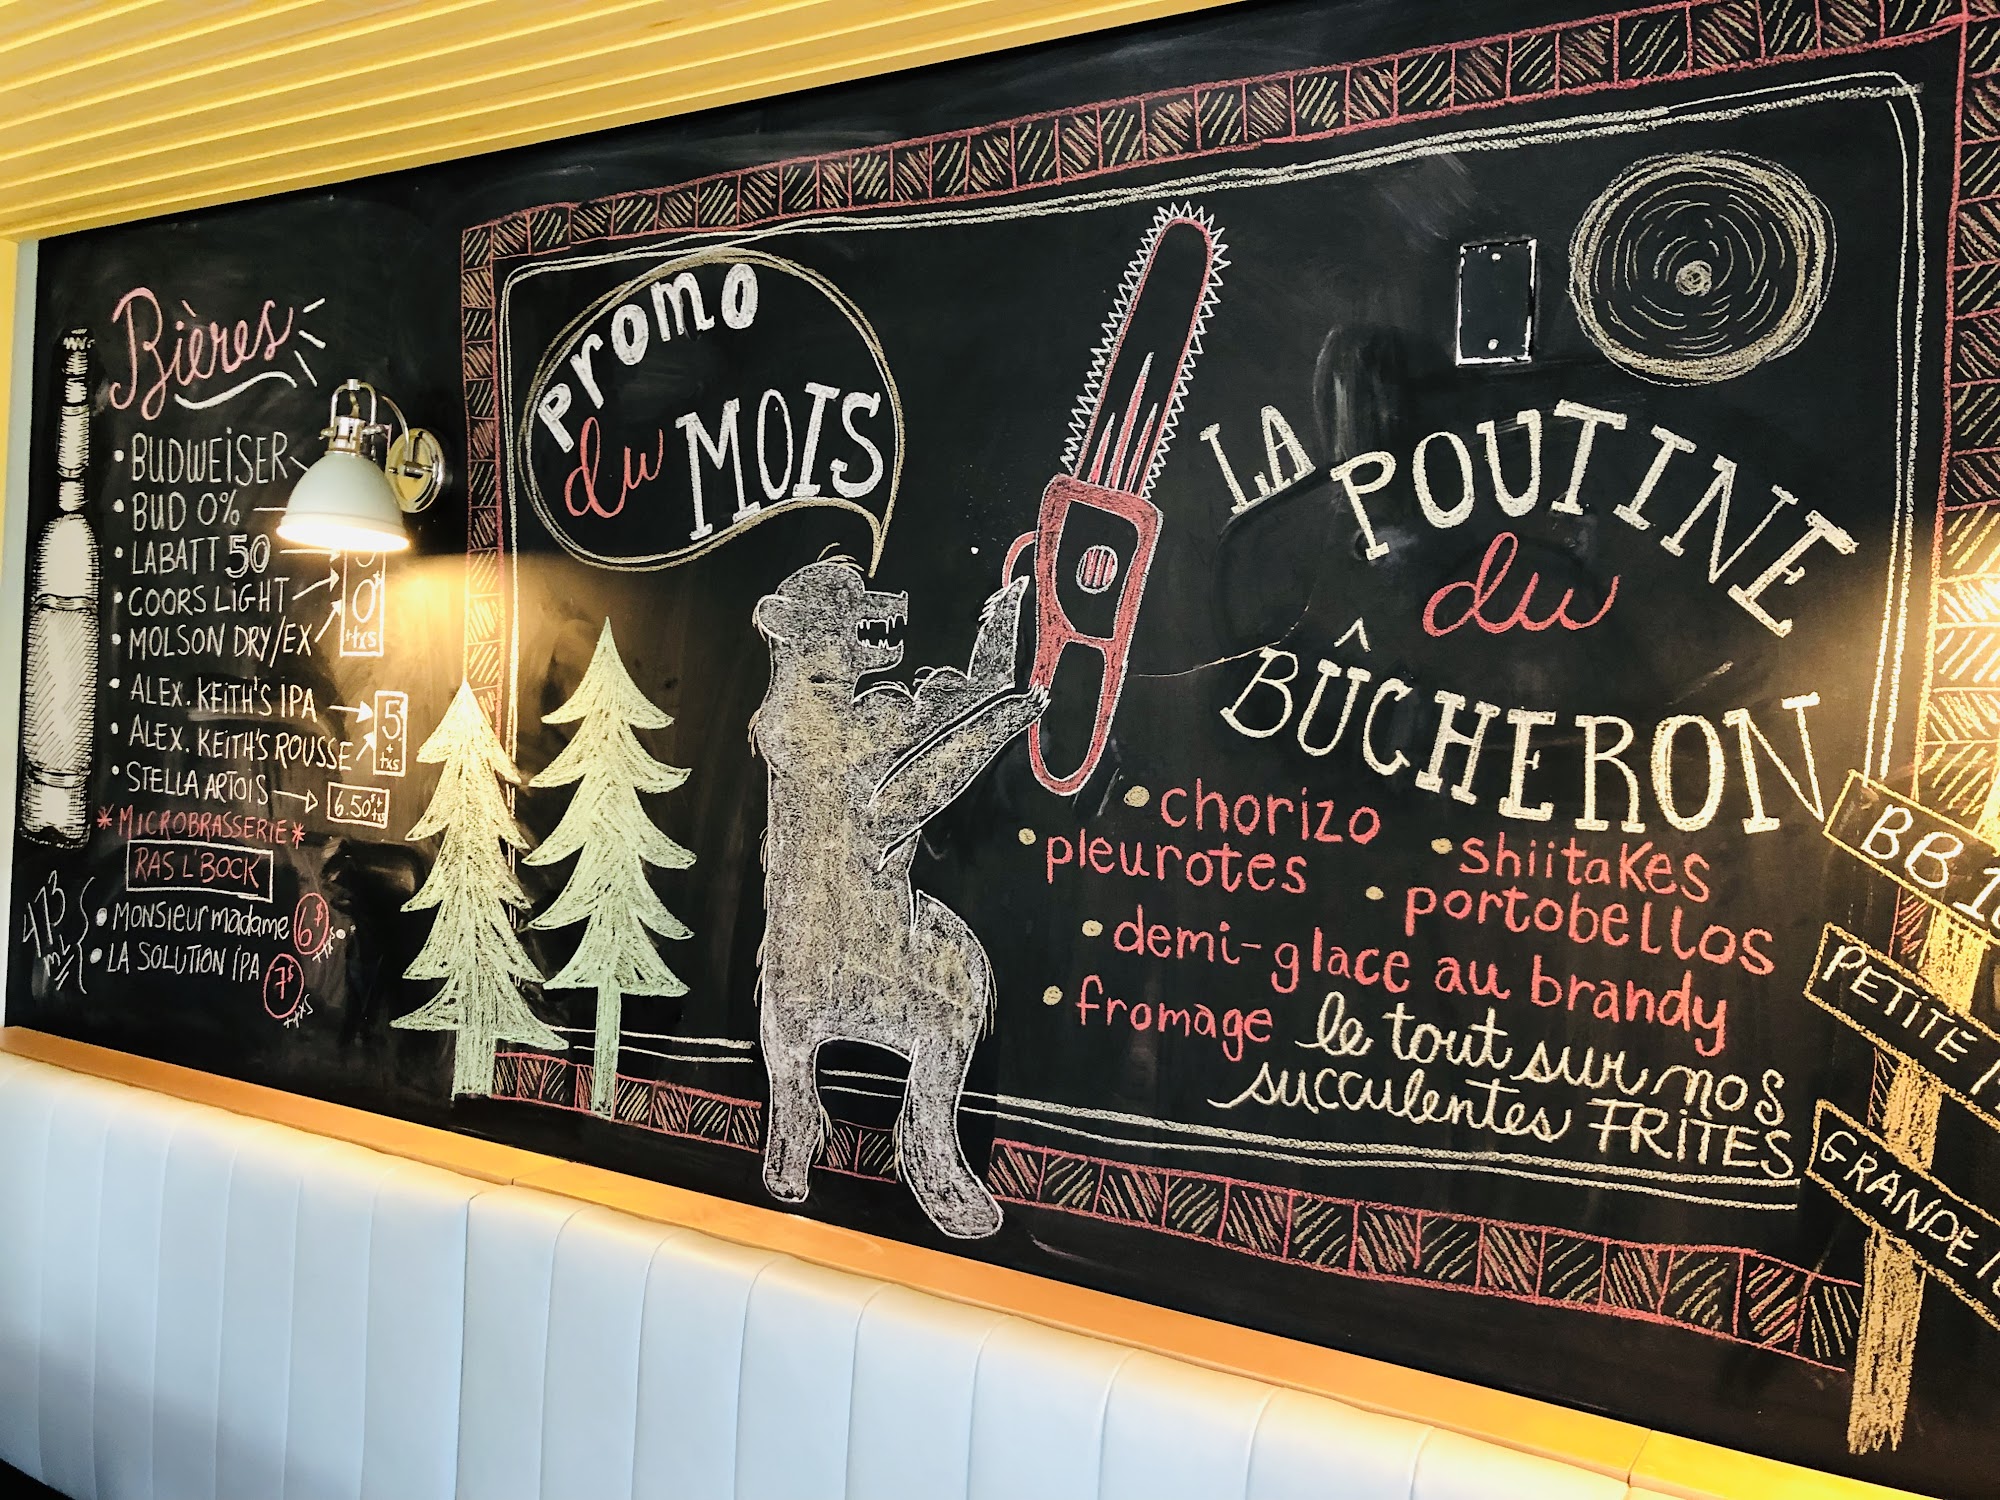 Bières
• BUDWEISER
• BUD 0%
• LABATT 50
• COORS LIGHT
• MOLSON DRY/EX
+txs
• ALEX. KEITH'S IPA
• ALEX. KEITH'S ROUSSE
5
+
txs
• STELLA ARTOIS → 6.50$+txs
*MICROBRASSERIE*
RAS L'BOCK
473 mL
• MONSIEUR madame 6$ +txs
• LA SOLUTION IPA 7$ +txs
Promo
du MOIS
LA POUTINE
du
BÛCHERON
• chorizo
• pleurotes • shiitakes
• portobellos
• demi-glace au brandy
• fromage le tout sur nos
succulentes FRITES
BB
PETITE
GRANDE